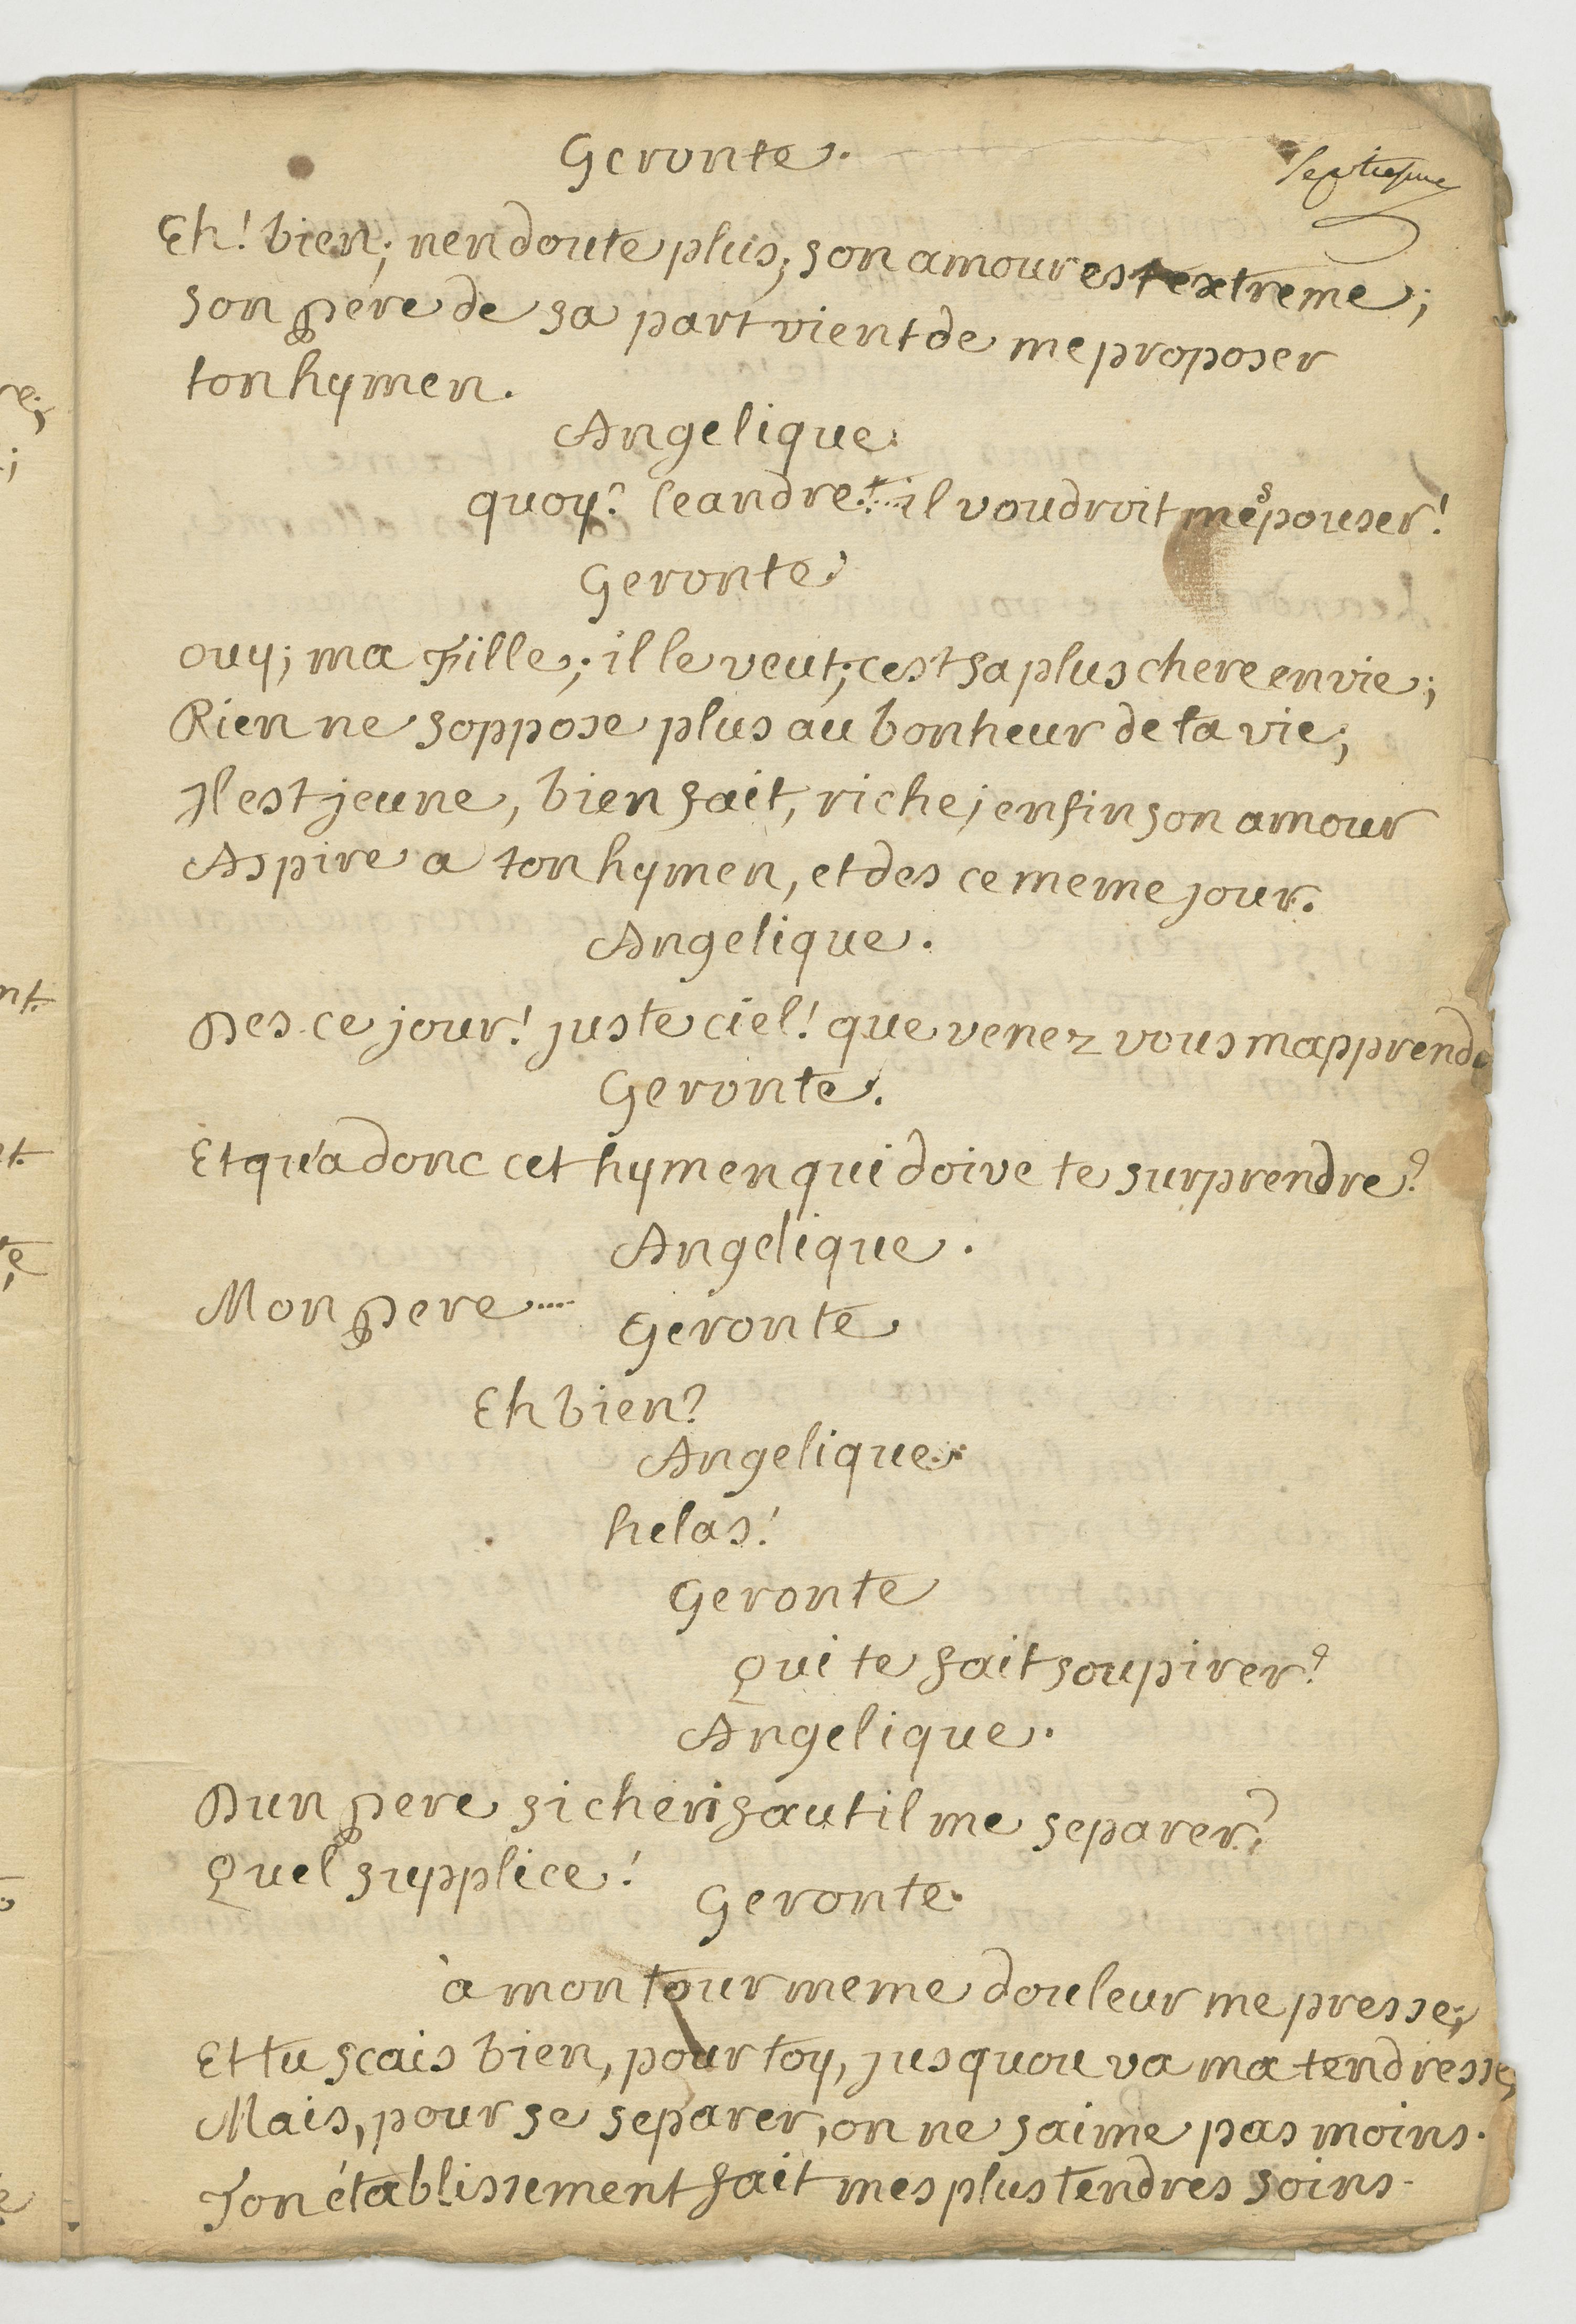 Geronte.
Septiesme
Eh! bien; nen doute plus; son amour est extreme;
son pere de sa part vient de me proposer
ton hymen.
Angelique.
quoy? leandre!... il voudroit mespouser!
Geronte.
ouy; ma fille; il le veut; cest sa plus chere envie;
Rien ne soppose plus au bonheur de ta vie;
Il est jeune, bien fait, riche; enfin son amour
Aspire a ton hymen, et des ce meme jour.
Angelique.
Des ce jour! juste ciel! que venez vous mapprend
Geronte.
Et qu'a donc cet hymen qui doive te surprendre?
Angelique.
Mon pere....
Geronte
Eh bien?
Angelique.
helas!
Geronte
Qui te fait soupirer?
Angelique.
Dun pere si cheri faut il me separer?
Quel supplice!
Geronte.
à mon tour meme douleur me presse;
Et tu scais bien, pour toy, jusquou va ma tendresse,
Mais, pour se separer, on ne saime pas moins.
Ton établissement fait mes plus tendres soins.